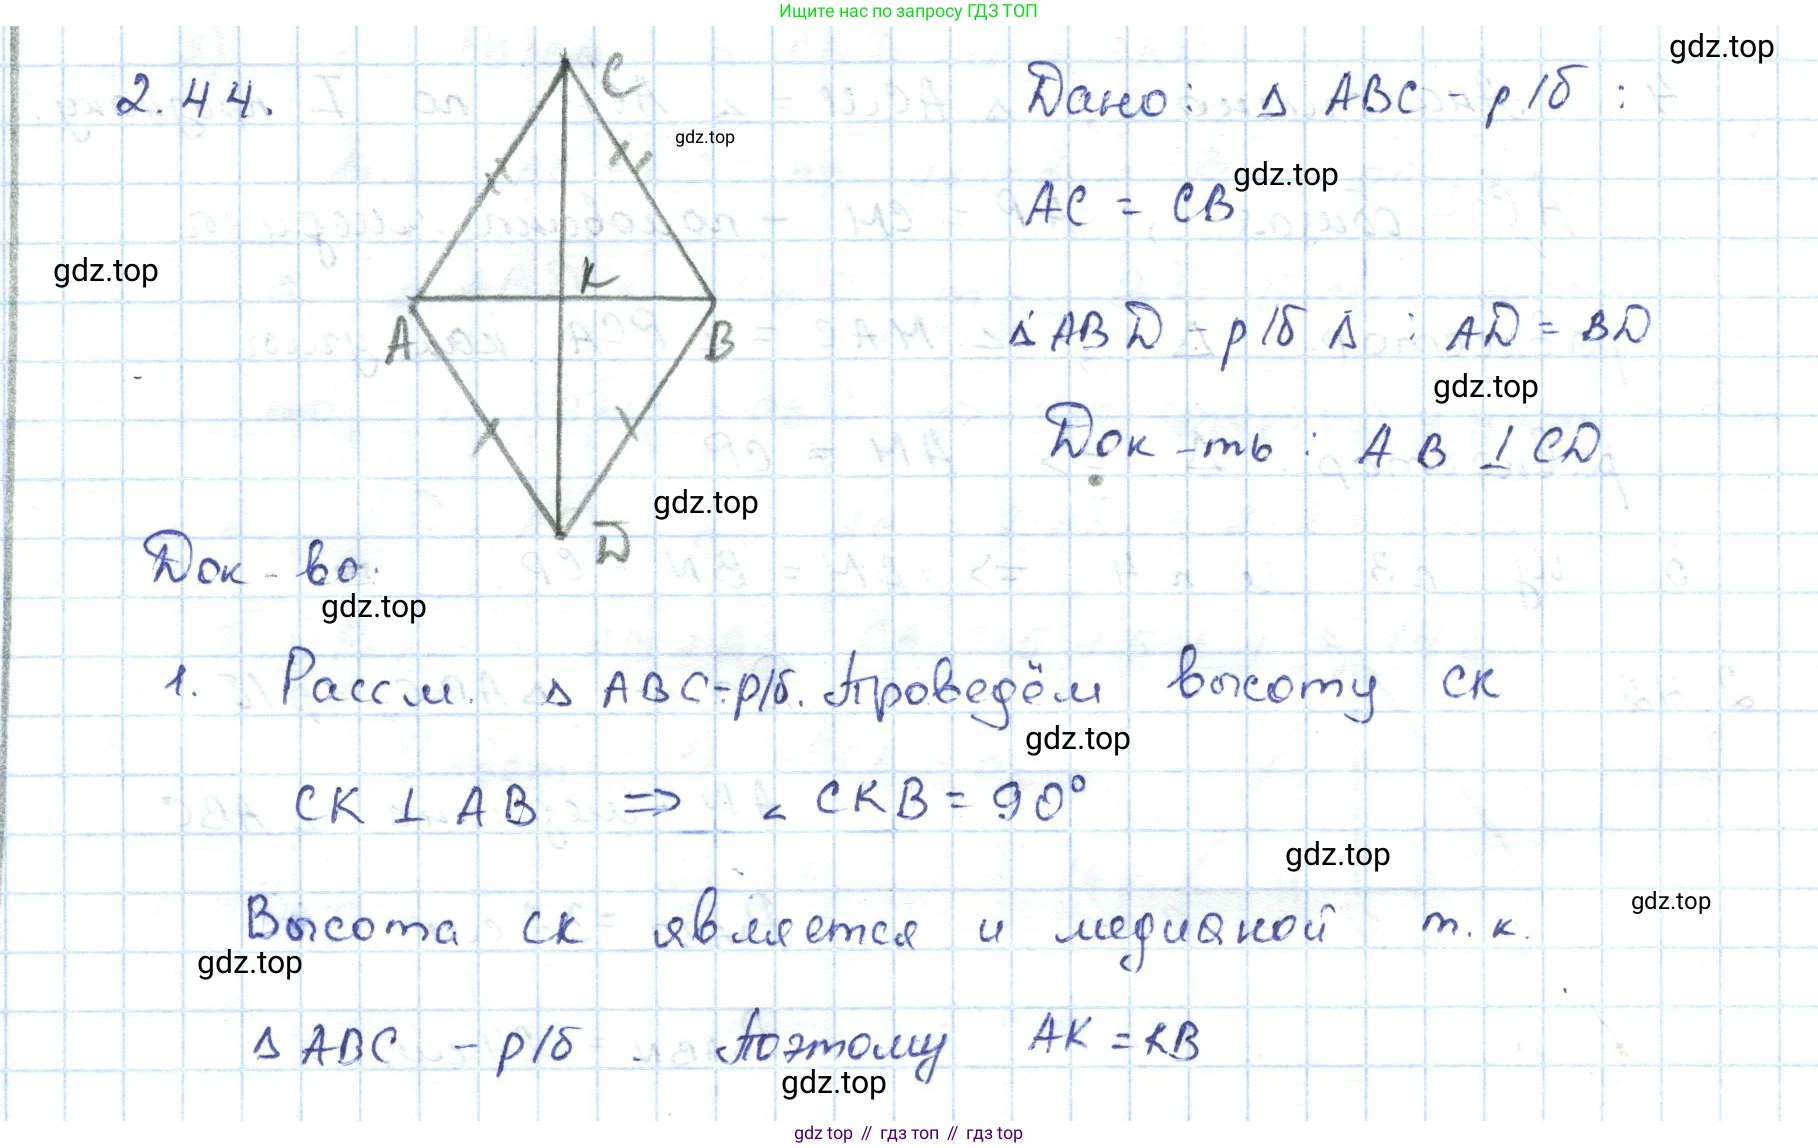 Ищите нас по запросу ГДЗ ТОП
gdz.top
2.44.
C
Дано: Δ ABC - р/б :
gdz.top
gdz.top
AC = CB
gdz.top
K
A
B
Δ ABD - р/б Δ : AD = BD
gdz.top
Док-ть: AB ⊥ CD
gdz.top
D
Док-во.
gdz.top
1. Рассм. Δ ABC - р/б. Проведём высоту CK
gdz.top
CK ⊥ AB ⇒ ∠ CKB = 90°
gdz.top
gdz.top
Высота CK является и медианой т.к.
gdz.top
Δ ABC - р/б. Поэтому AK = KB
gdz.top
gdz top // гдз топ // gdz top